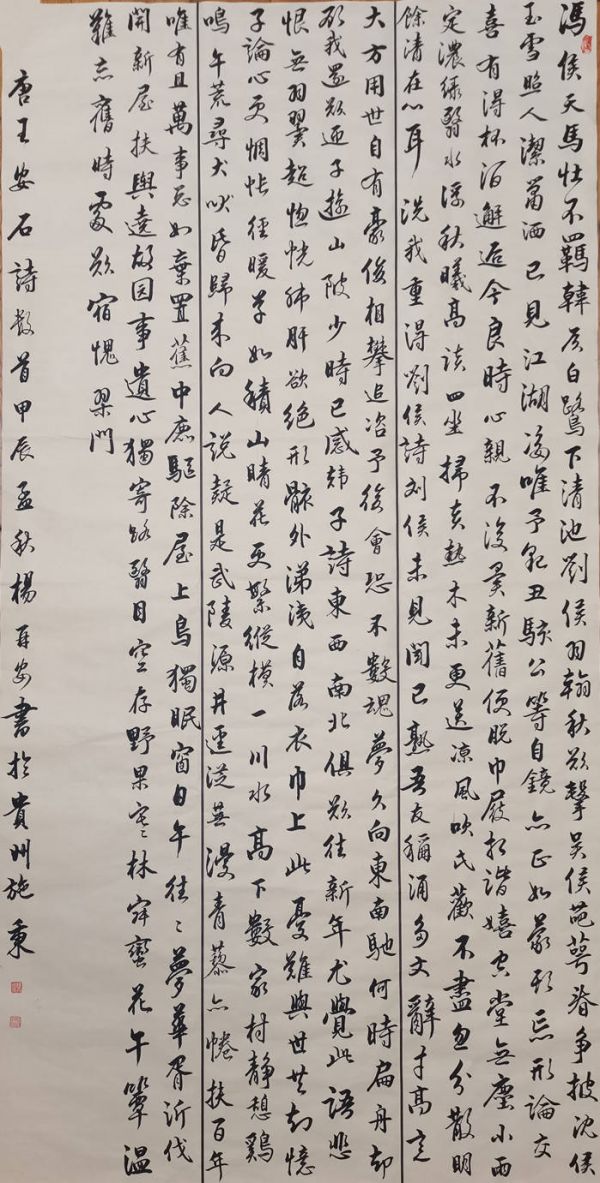 馮侯天馬壮不羈韓侯白鷺下清池劉侯羽翰秋欲擊吴侯葩萼春争披沈侯
玉雪照人潔蕭洒已見江湖姿唯予貌丑駭公等自鏡亦正如蒙形忘形論交
喜有得杯酒邂逅今良時心親不復異新舊便脱巾屨相諧嬉空堂無塵小雨
定濃緑翳水浮秋曦高談四坐掃炎熱木末更送凉風吹此歡不盡忽分散明
餘清在心耳洗我重得劉侯詩刘侯未見聞已熟吾友稱誦多文辭才高意
大方用世自有豪俊相攀追咨予後會恐不數魂夢久向東南馳何時扁舟却
顧我還欲迎子游山陂少時已感韩子詩東西南北俱欲往新年尤覺此語悲
恨無羽翼超惚恍肺肝欲絶形骸外涕洟自落衣巾上此憂難與世共知憶
子論心更惆悵徑暖草如積山晴花更繁縱横一川水高下數家村静想鷄
鳴午荒尋犬吠昏歸来向人説疑是武陵源井逕從蕪漫青藜亦倦扶百年
唯有且萬事忘如棄置蕉中鹿驅除屋上烏獨眠窗日午往〻夢華胥沂伐
開新屋扶輿遶故园事遺心獨寄路翳目空存野果寒林寂蠻花午簟温
難忘舊時處欲宿愧桑門
唐王安石詩數首甲辰孟秋楊再安書於貴州施秉